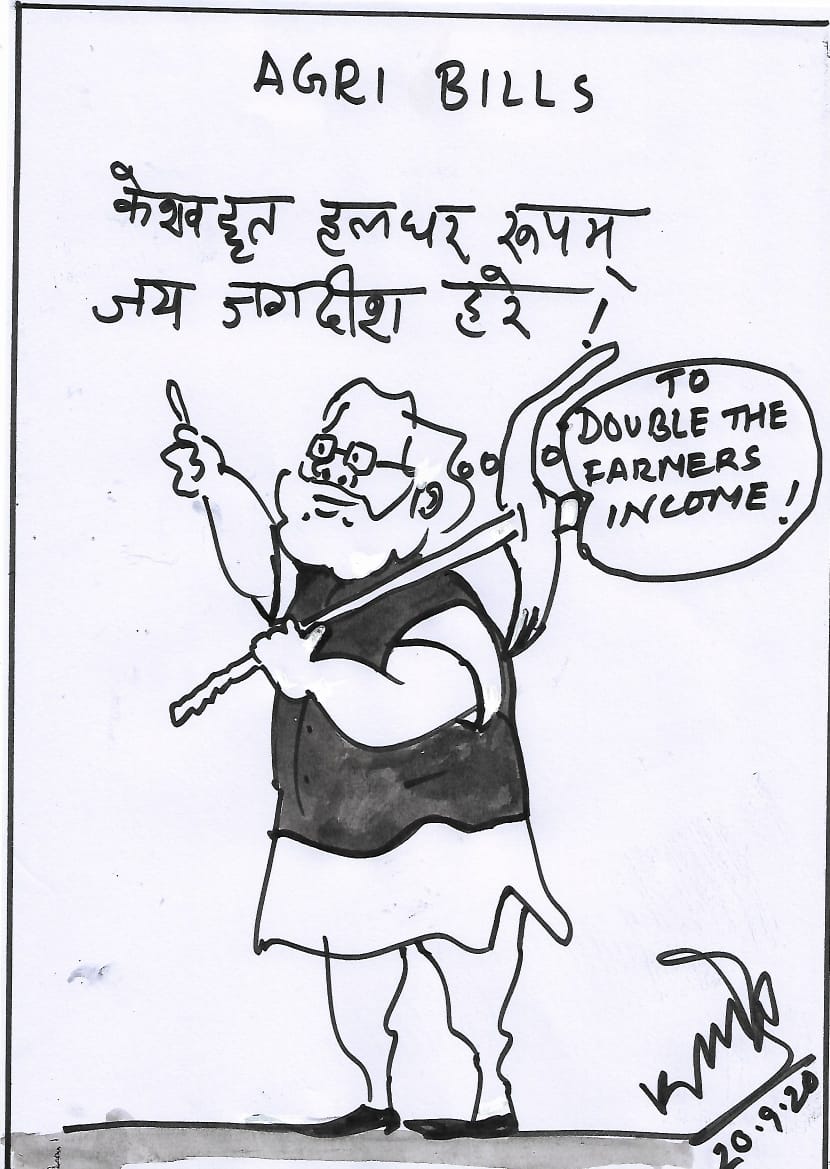 AGRI BILLS
केशव हृत हलधर रूपम्
जय जगदीश हरे !
TO
DOUBLE THE
FARMERS
INCOME!
20.9.20